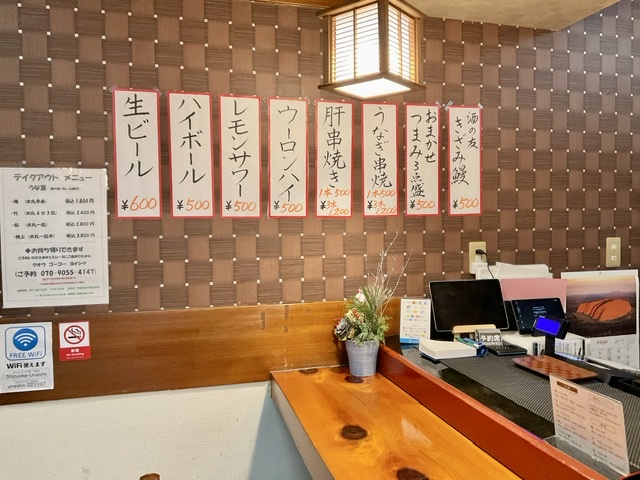 生ビール
¥600
ハイボール
¥500
レモンサワー
¥500
ウーロンハイ
¥500
肝串焼き
1本500
¥3本1,200
うなぎ串焼
1本500
¥3本1,200
おまかせ
つまみ3点盛
¥500
酒の友
きざみ鰻
¥500
テイクアウト メニュー
うな重
税込 1,800円
税込 2,600円
税込 2,800円
税込 3,800円
◆お持ち帰りできます
(ご予約 070-9055-4147)
FREE WiFi
WiFi使えます
Shizuoka-Unasho
禁煙
予約席